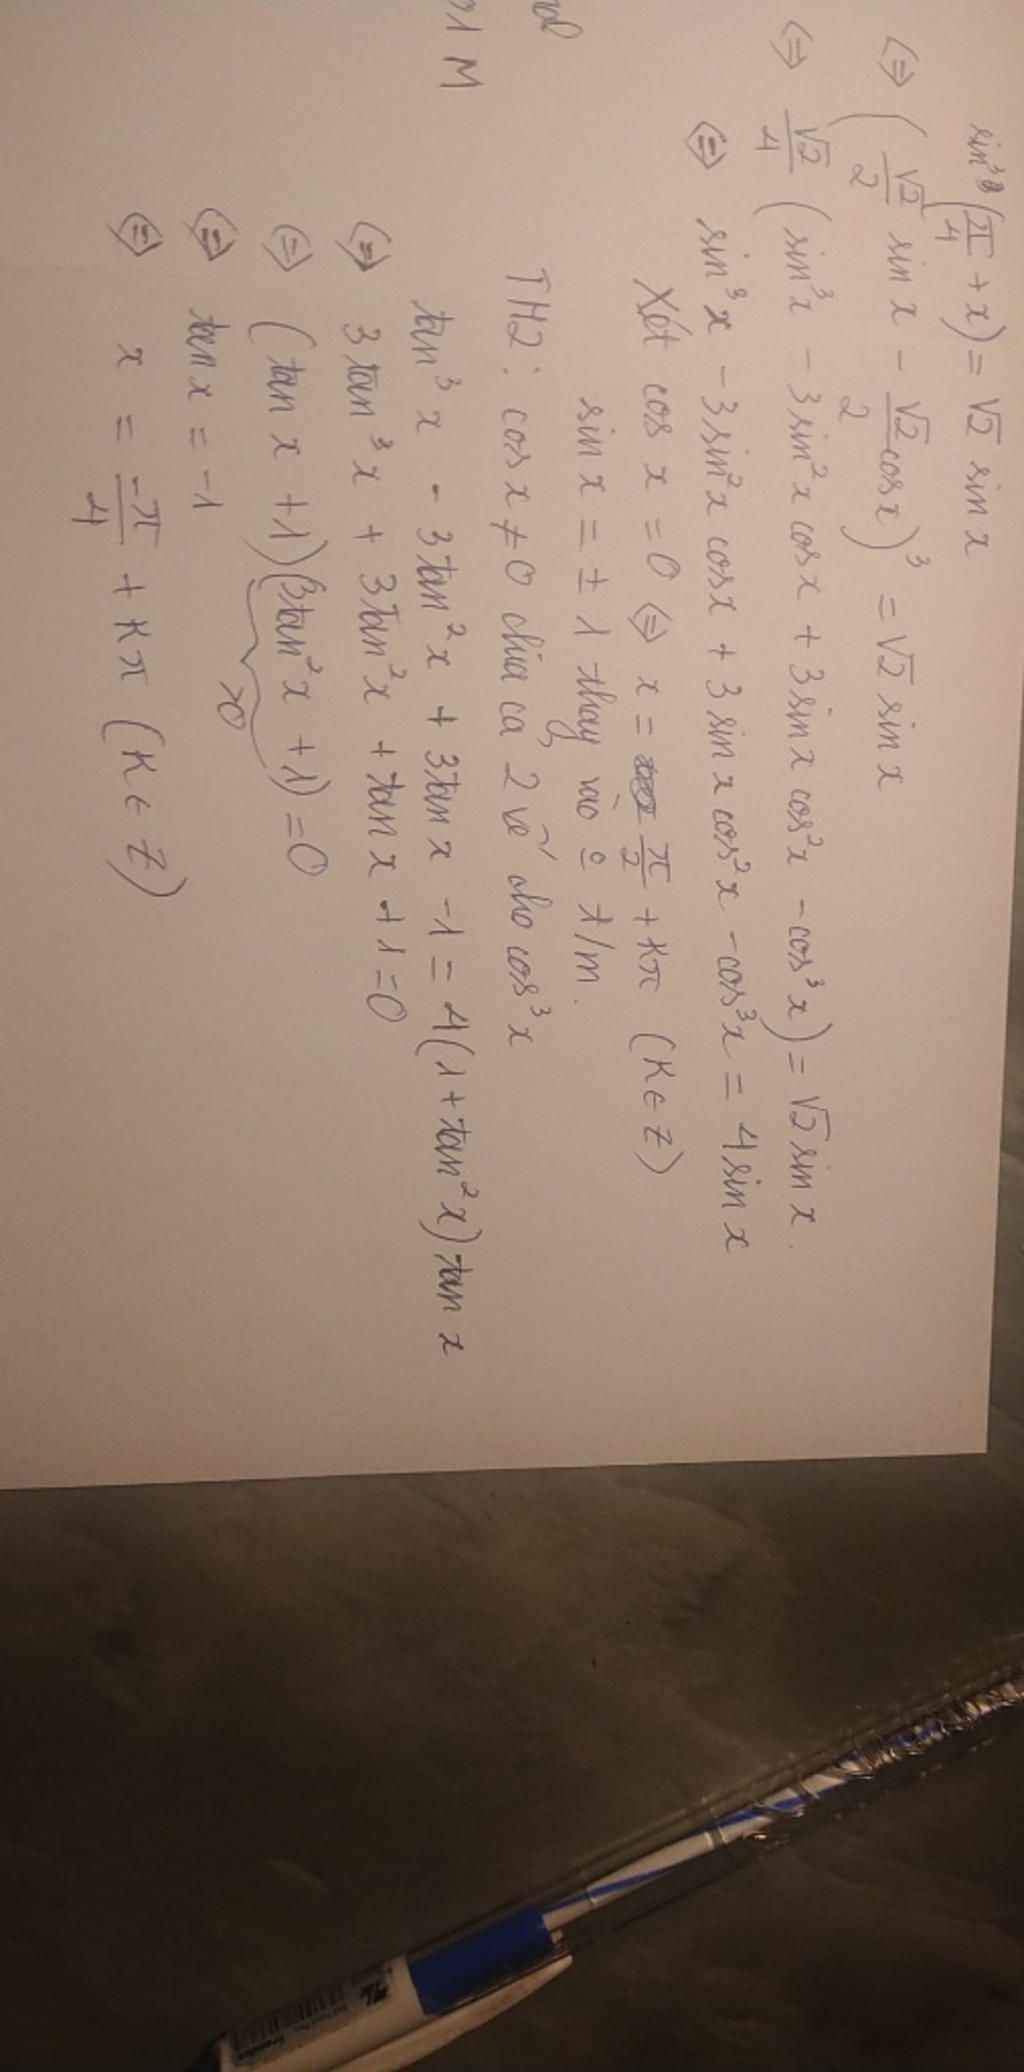 sin³(π/4 + x) = √2 sin x
⇔ (√2/2 sin x - √2/2 cos x)³ = √2 sin x
⇔ √2/4 (sin³x - 3sin²x cosx + 3sinx cos²x - cos³x) = √2 sin x.
⇔ sin³x - 3sin²x cosx + 3 sin x cos²x - cos³x = 4 sin x
Xét cos x = 0 ⇔ x = π/2 + kπ (k ∈ Z)
sin x = ± 1 thay vào o t/m.
TH2: cos x ≠ 0 chia cả 2 vế cho cos³x
tan³x - 3tan²x + 3tan x - 1 = 4(1 + tan²x) tan x
⇔ 3tan³x + 3tan²x + tan x + 1 = 0
⇔ (tan x + 1)(3tan²x + 1) = 0
>0
⇔ tan x = -1
⇔ x = -π/4 + kπ (k ∈ Z)
M